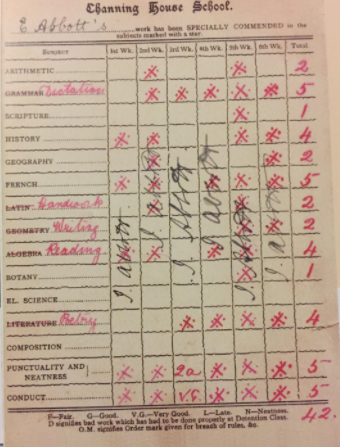 Channing House School.
E. Abbott's work has been SPECIALLY COMMENDED in the
subjects marked with a star.
SUBJECT 1st Wk. 2nd Wk. 3rd Wk. 4th Wk. 5th Wk. 6th Wk. Total.
ARITHMETIC 2
GRAMMAR Dictation 5
SCRIPTURE 1
HISTORY 4
GEOGRAPHY 2
FRENCH 5
LATIN Handwork 2
GEOMETRY Writing 2
ALGEBRA Reading 4
BOTANY 1
EL. SCIENCE
LITERATURE Poetry 4
COMPOSITION
PUNCTUALITY AND NEATNESS 2a 5
CONDUCT V.G. 5
F—Fair. G—Good. V.G.—Very Good. L—Late. N—Neatness.
D signifies bad work which has had to be done properly at Detention Class.
O.M. signifies Order mark given for breach of rules, &c.
42.
J. Abbott
J. Abbott
J. Abbott
J. Abbott
J. Abbott
J. Abbott